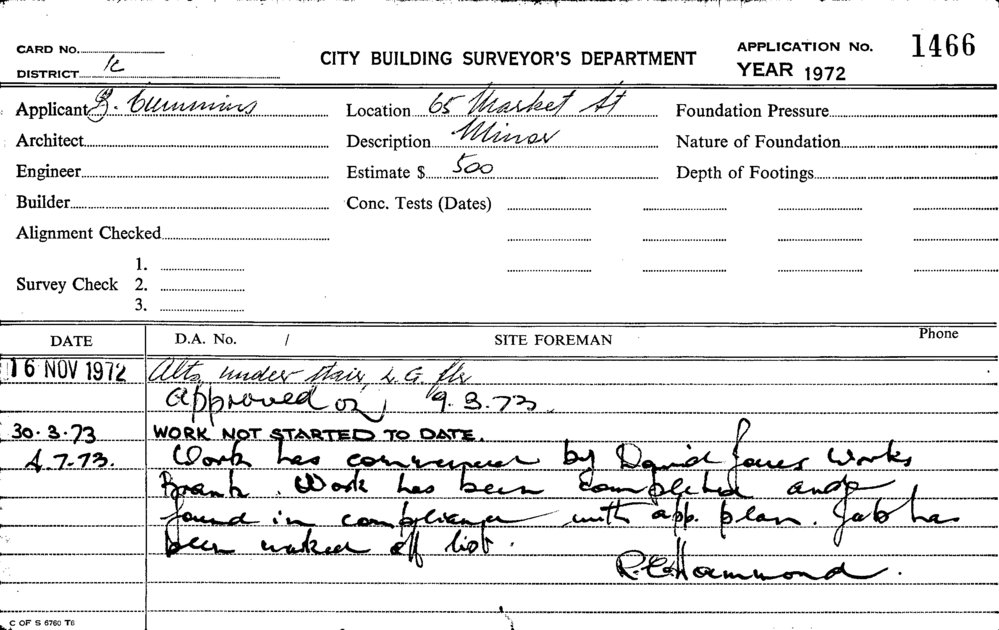 CARD No.
DISTRICT 1c
CITY BUILDING SURVEYOR'S DEPARTMENT
APPLICATION No. 1466
YEAR 1972
Applicant Cummins
Location 65 Market St
Foundation Pressure
Architect
Description Minor
Nature of Foundation
Engineer
Estimate $ 500
Depth of Footings
Builder
Conc. Tests (Dates)
Alignment Checked
Survey Check 1.
2.
3.
DATE D.A. No. / SITE FOREMAN Phone
16 NOV 1972 Alts. under stair, L.G. flr
approved on 9.3.73.
30.3.73 WORK NOT STARTED TO DATE.
4.7.73. Work has commenced by David Jones Works
Branh. Work has been completed and
found in compliance with app. plan. Job has
been marked off list.
R.C. Hammond.
C OF S 6760 T6